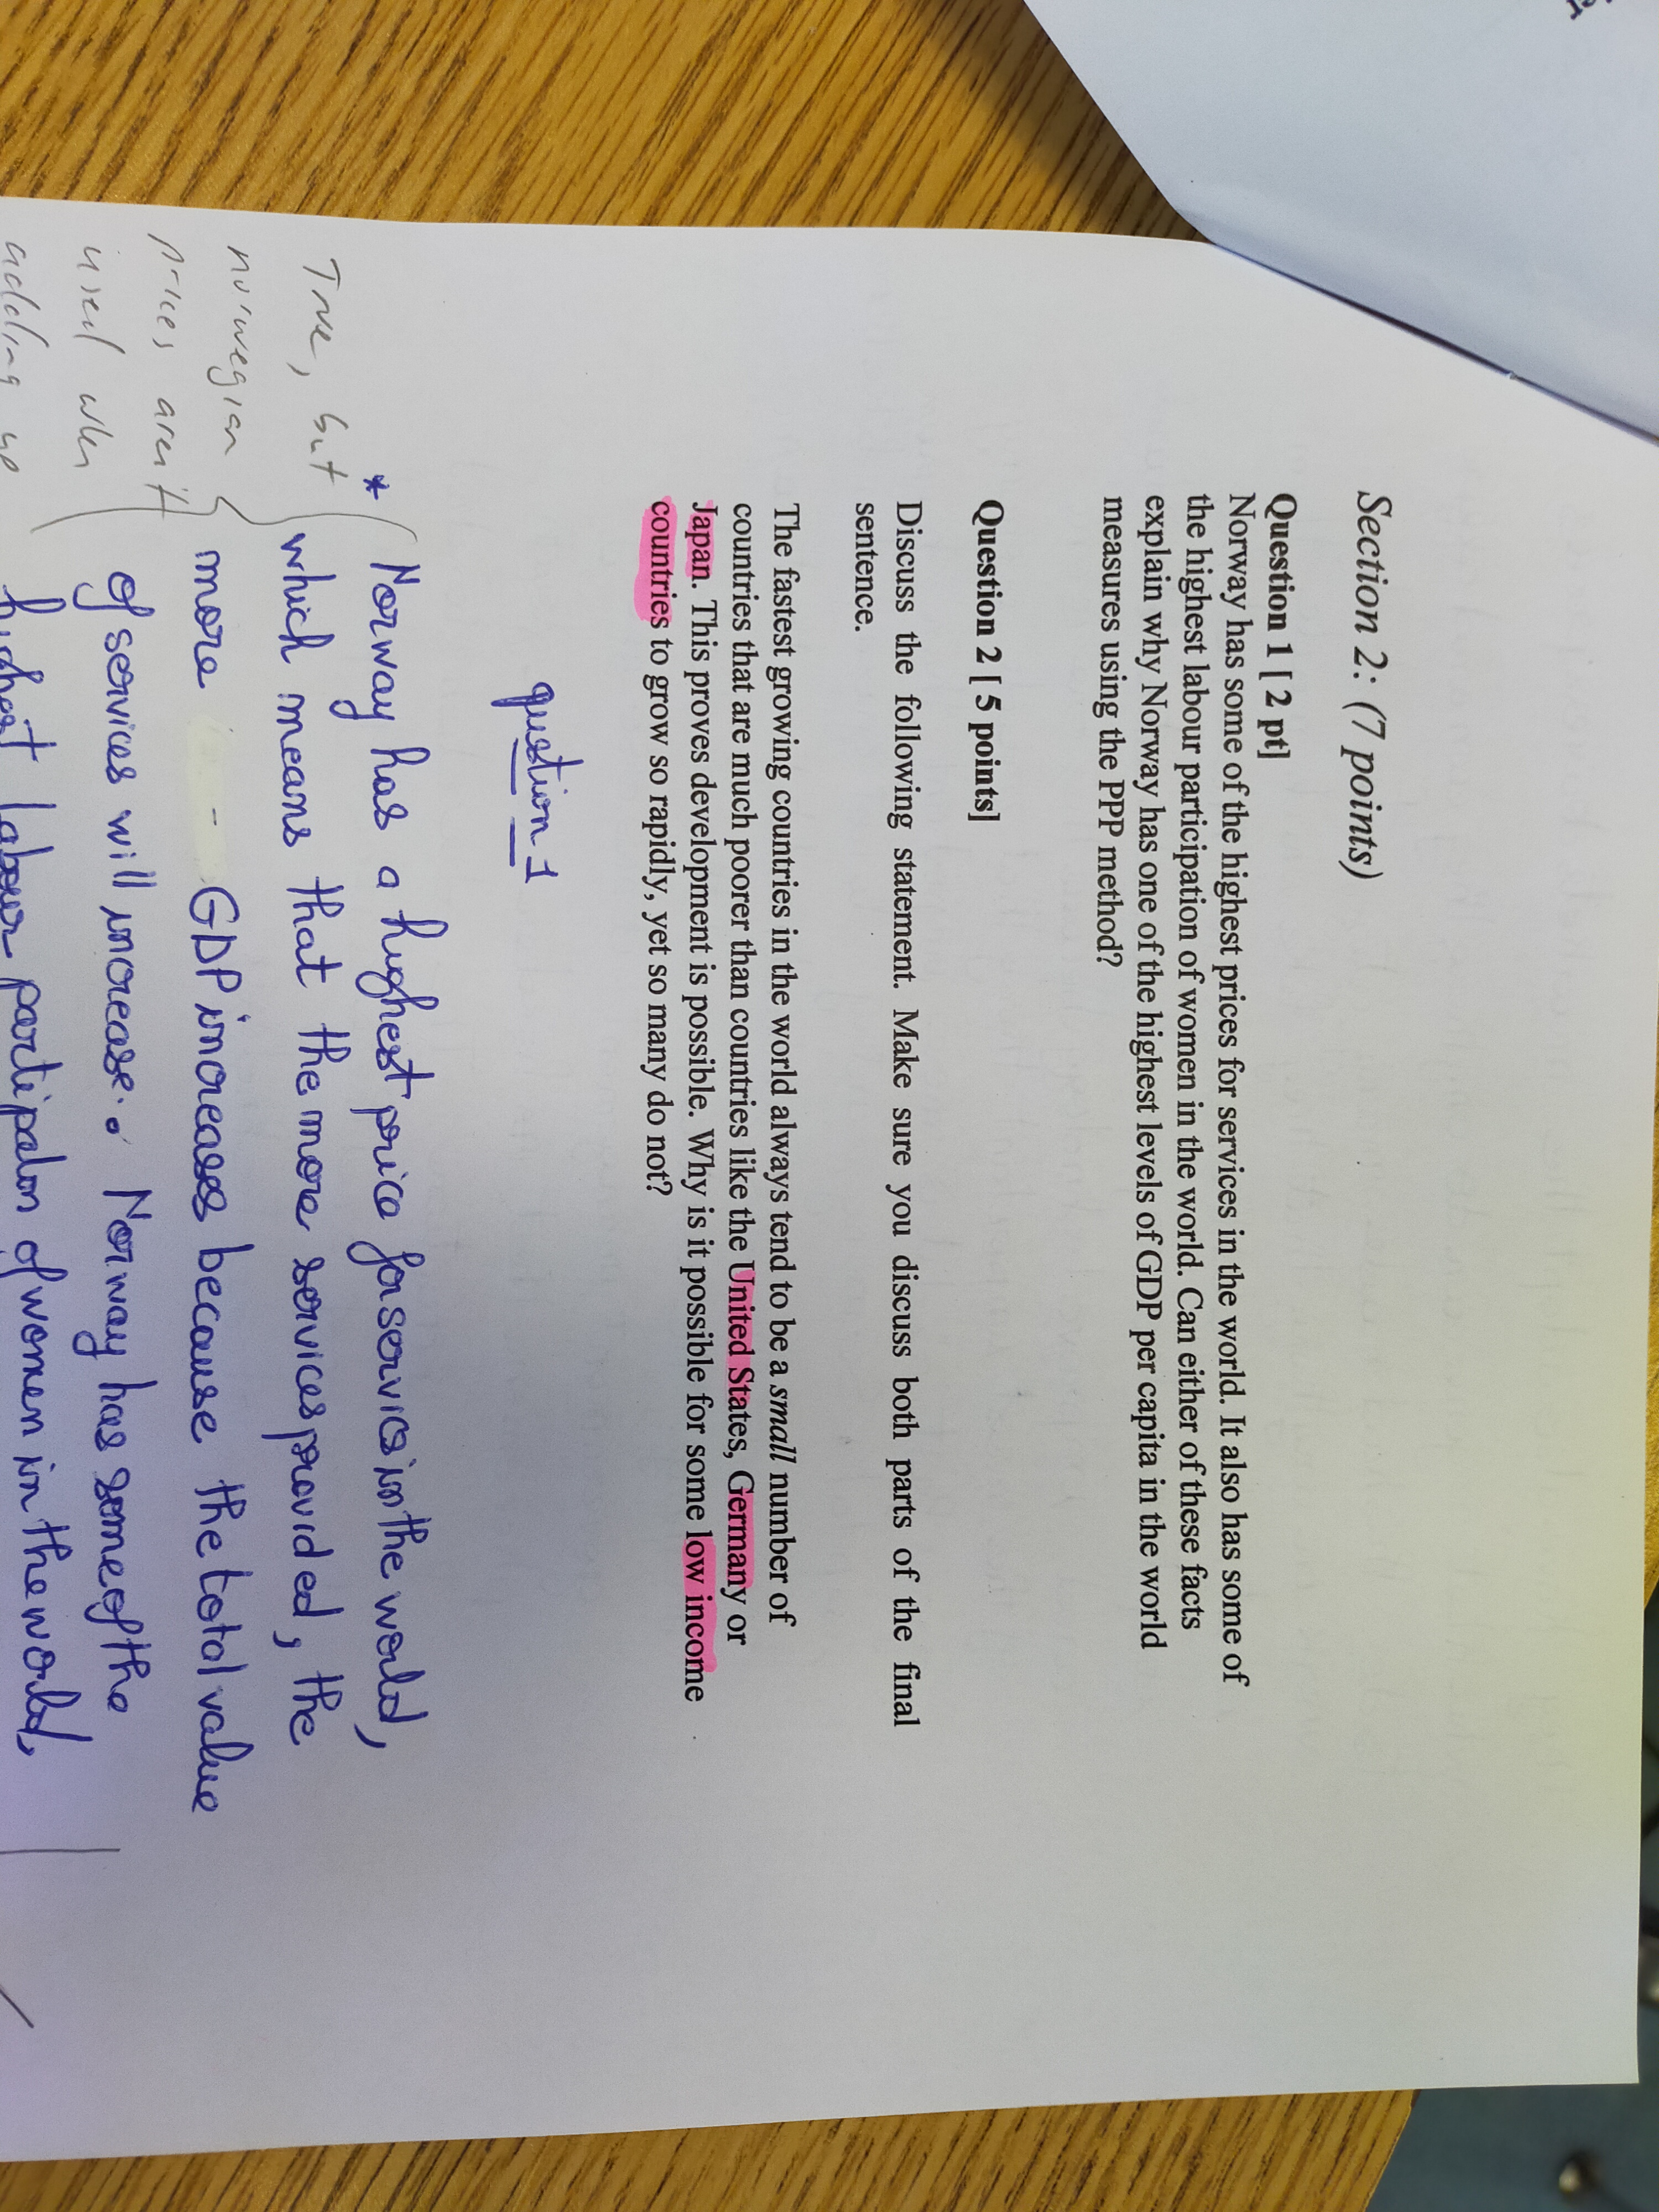 Section 2: (7 points)
Question 1 [ 2 pt]
Norway has some of the highest prices for services in the world. It also has some of
the highest labour participation of women in the world. Can either of these facts
explain why Norway has one of the highest levels of GDP per capita in the world
measures using the PPP method?
Question 2 [ 5 points]
Discuss the following statement. Make sure you discuss both parts of the final
sentence.
The fastest growing countries in the world always tend to be a small number of
countries that are much poorer than countries like the United States, Germany or
Japan. This proves development is possible. Why is it possible for some low income
countries to grow so rapidly, yet so many do not?
question 1
* Norway has a highest price for services in the world,
which means that the more services provided, the
more - GDP increases because the total value
of services will increase. Norway has some of the
highest labour partipation of women in the world,
True, but
norwegian
prices aren't
used when
adding up